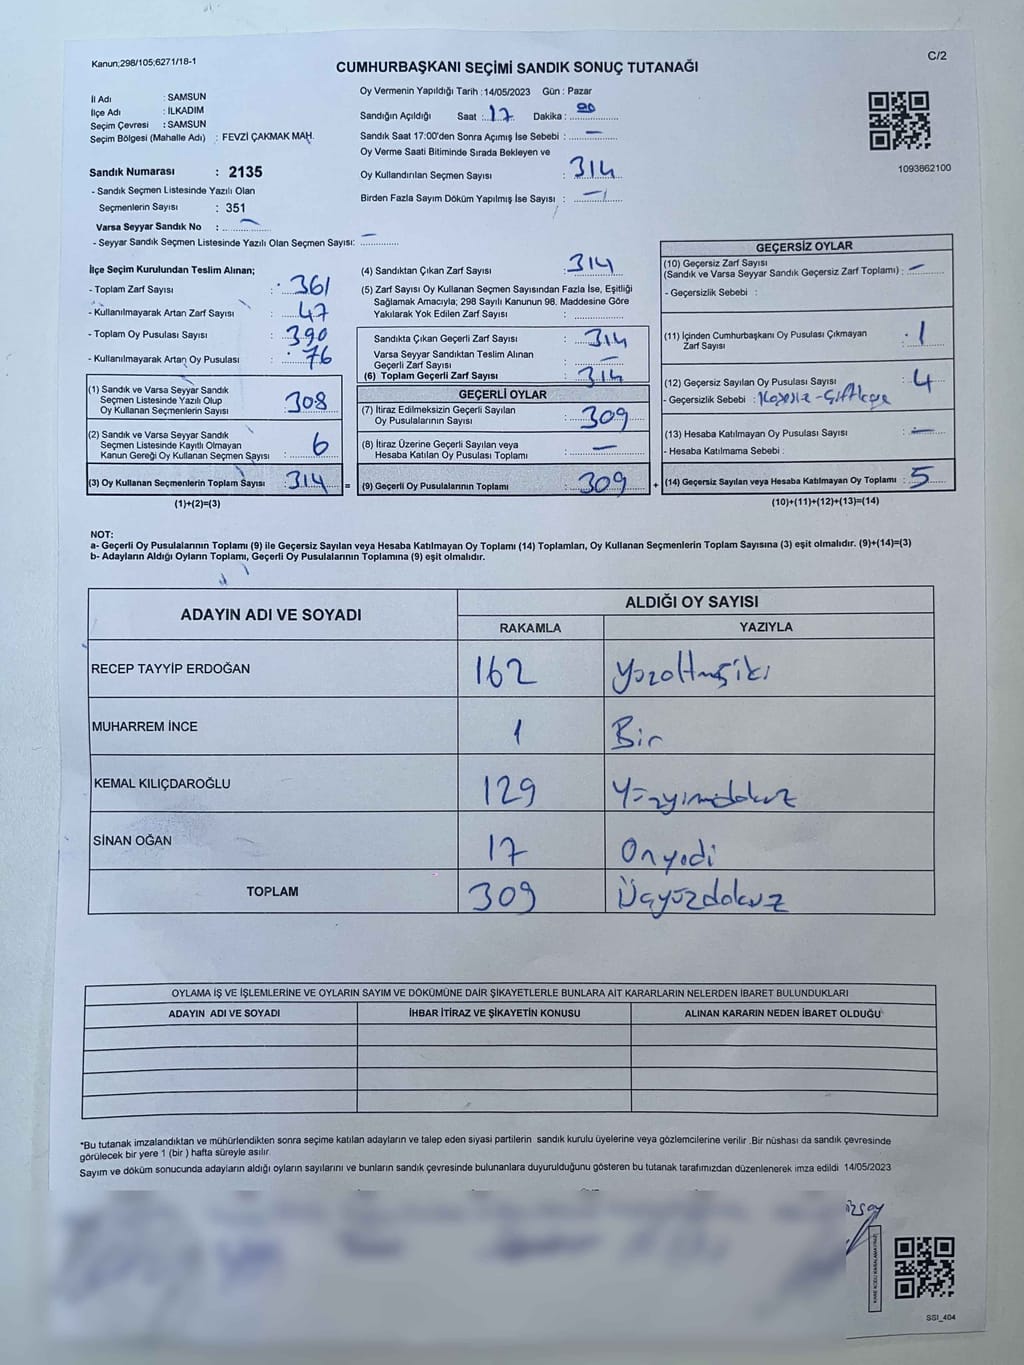 Kanun;298/105;6271/18-1
C/2
CUMHURBAŞKANI SEÇİMİ SANDIK SONUÇ TUTANAĞI
İl Adı : SAMSUN
İlçe Adı : İLKADIM
Seçim Çevresi : SAMSUN
Seçim Bölgesi (Mahalle Adı) : FEVZİ ÇAKMAK MAH.
Sandık Numarası : 2135
- Sandık Seçmen Listesinde Yazılı Olan
Seçmenlerin Sayısı : 351
Varsa Seyyar Sandık No : —
- Seyyar Sandık Seçmen Listesinde Yazılı Olan Seçmen Sayısı: —
Oy Vermenin Yapıldığı Tarih :14/05/2023 Gün : Pazar
Sandığın Açıldığı Saat : 17 Dakika : 00
Sandık Saat 17:00'den Sonra Açımış İse Sebebi : —
Oy Verme Saati Bitiminde Sırada Bekleyen ve
Oy Kullandırılan Seçmen Sayısı : 314
Birden Fazla Sayım Döküm Yapılmış İse Sayısı : —
1093862100
İlçe Seçim Kurulundan Teslim Alınan;
- Toplam Zarf Sayısı : 361
- Kullanılmayarak Artan Zarf Sayısı : 47
- Toplam Oy Pusulası Sayısı : 390
- Kullanılmayarak Artan Oy Pusulası : 76
(1) Sandık ve Varsa Seyyar Sandık
Seçmen Listesinde Yazılı Olup
Oy Kullanan Seçmenlerin Sayısı : 308
(2) Sandık ve Varsa Seyyar Sandık
Seçmen Listesinde Kayıtlı Olmayan
Kanun Gereği Oy Kullanan Seçmen Sayısı : 6
(3) Oy Kullanan Seçmenlerin Toplam Sayısı : 314 =
(1)+(2)=(3)
(4) Sandıktan Çıkan Zarf Sayısı : 314
(5) Zarf Sayısı Oy Kullanan Seçmen Sayısından Fazla İse, Eşitliği
Sağlamak Amacıyla; 298 Sayılı Kanunun 98. Maddesine Göre
Yakılarak Yok Edilen Zarf Sayısı :
Sandıkta Çıkan Geçerli Zarf Sayısı : 314
Varsa Seyyar Sandıktan Teslim Alınan
Geçerli Zarf Sayısı : —
(6) Toplam Geçerli Zarf Sayısı : 314
GEÇERLİ OYLAR
(7) İtiraz Edilmeksizin Geçerli Sayılan
Oy Pusulalarının Sayısı : 309
(8) İtiraz Üzerine Geçerli Sayılan veya
Hesaba Katılan Oy Pusulası Toplamı : —
(9) Geçerli Oy Pusulalarının Toplamı : 309 +
GEÇERSİZ OYLAR
(10) Geçersiz Zarf Sayısı
(Sandık ve Varsa Seyyar Sandık Geçersiz Zarf Toplamı) : —
- Geçersizlik Sebebi :
(11) İçinden Cumhurbaşkanı Oy Pusulası Çıkmayan
Zarf Sayısı : 1
(12) Geçersiz Sayılan Oy Pusulası Sayısı : 4
- Geçersizlik Sebebi :
(13) Hesaba Katılmayan Oy Pusulası Sayısı : —
- Hesaba Katılmama Sebebi :
(14) Geçersiz Sayılan veya Hesaba Katılmayan Oy Toplamı : 5
(10)+(11)+(12)+(13)=(14)
NOT:
a- Geçerli Oy Pusulalarının Toplamı (9) ile Geçersiz Sayılan veya Hesaba Katılmayan Oy Toplamı (14) Toplamları, Oy Kullanan Seçmenlerin Toplam Sayısına (3) eşit olmalıdır. (9)+(14)=(3)
b- Adayların Aldığı Oyların Toplamı, Geçerli Oy Pusulalarının Toplamına (9) eşit olmalıdır.
ADAYIN ADI VE SOYADI ALDIĞI OY SAYISI
RAKAMLA YAZIYLA
RECEP TAYYİP ERDOĞAN 162 Yüzaltmışiki
MUHARREM İNCE 1 Bir
KEMAL KILIÇDAROĞLU 129 Yüzyirmidokuz
SİNAN OĞAN 17 Onyedi
TOPLAM 309 Üçyüzdokuz
OYLAMA İŞ VE İŞLEMLERİNE VE OYLARIN SAYIM VE DÖKÜMÜNE DAİR ŞİKAYETLERLE BUNLARA AİT KARARLARIN NELERDEN İBARET BULUNDUKLARI
ADAYIN ADI VE SOYADI İHBAR İTİRAZ VE ŞİKAYETİN KONUSU ALINAN KARARIN NEDEN İBARET OLDUĞU
*Bu tutanak imzalandıktan ve mühürlendikten sonra seçime katılan adayların ve talep eden siyasi partilerin sandık kurulu üyelerine veya gözlemcilerine verilir .Bir nüshası da sandık çevresinde
görülecek bir yere 1 (bir ) hafta süreyle asılır.
Sayım ve döküm sonucunda adayların aldığı oyların sayılarını ve bunların sandık çevresinde bulunanlara duyurulduğunu gösteren bu tutanak tarafımızdan düzenlenerek imza edildi 14/05/2023
KARE KODU KARALAMAYINIZ!
SSI_404